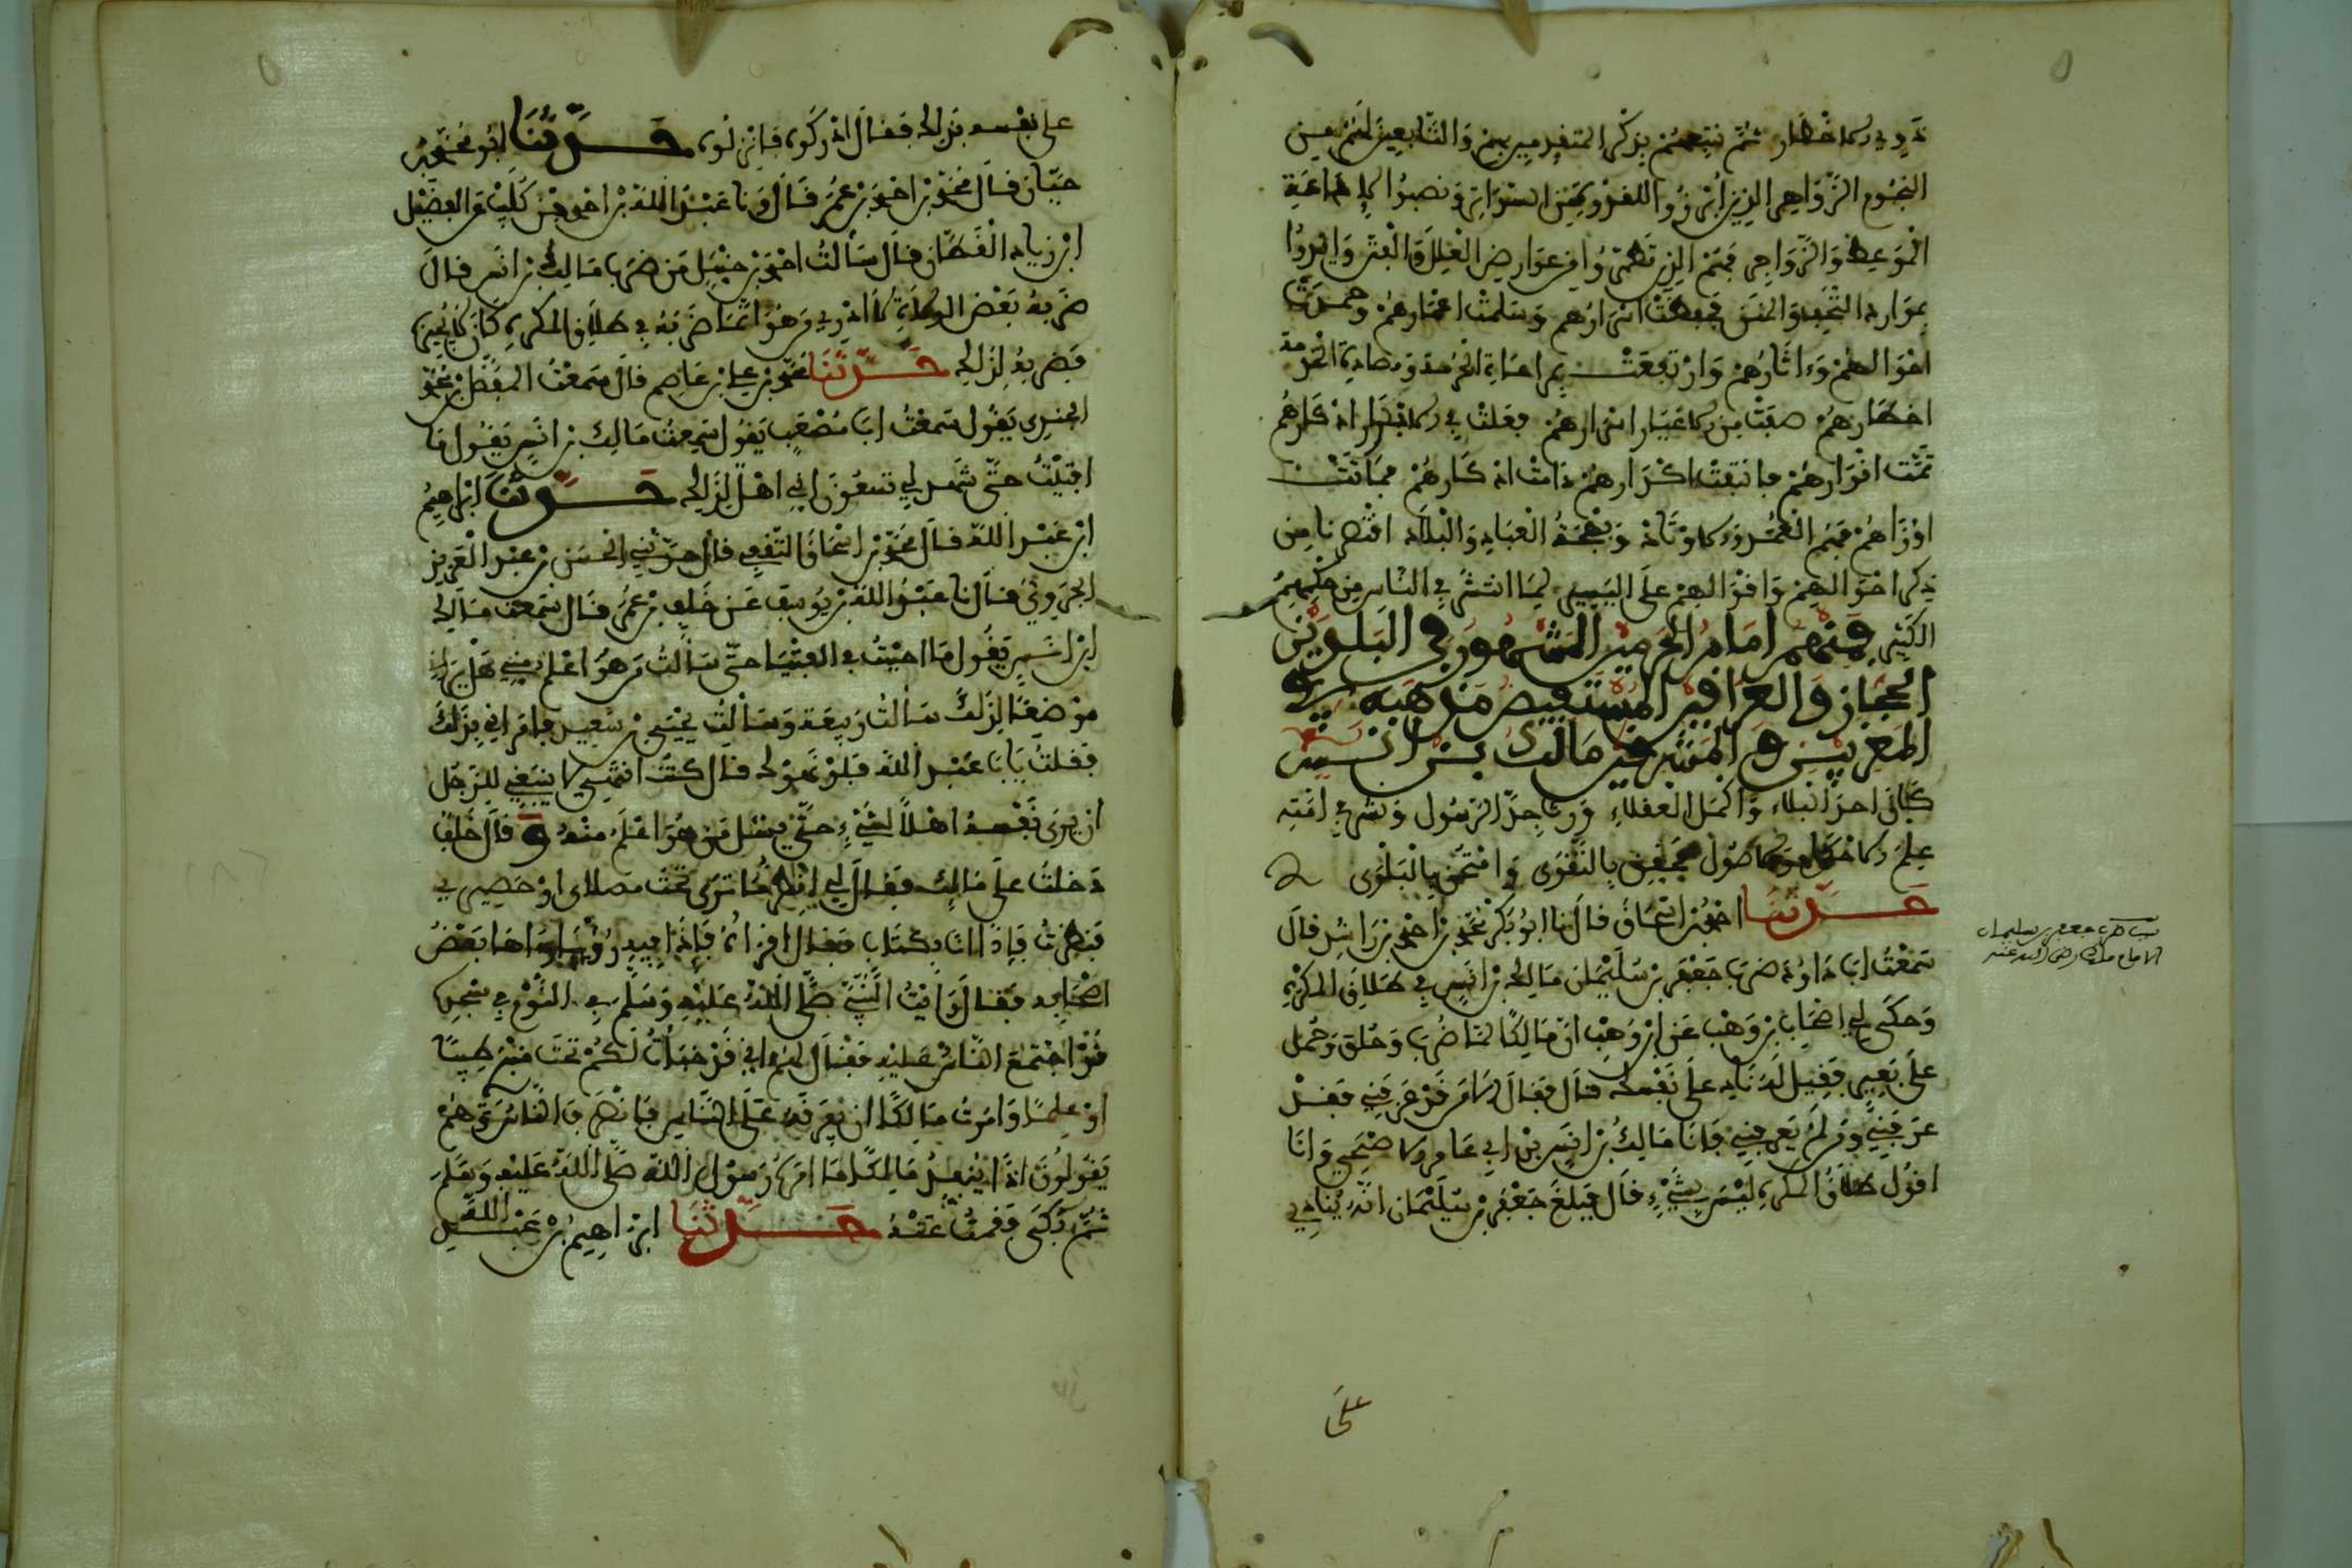 ذوي الاخطار ثم نتبعهم بذكر المتقدمين بهم والتابعين لهم من
النجوم الزواهر الذين
الموعظة والزواجر فمنهم الذين تطهروا من عوارض العلل والفتن وايدوا
بموارد التحف والمنن فحفظت اسرارهم وسلمت اعمارهم وحمدت
احوالهم واثارهم وارتفعت بمراعاة الحرمة ومصاحبة الخدمة
اخطارهم صفت من الاغيار اسرارهم فعلت في الابرار اذكارهم
تمت انوارهم فانتفت اكدارهم دامت اذكارهم فبانت
اوزارهم فهم العمد والاوتاد وبهجة العباد والبلاد اقتصرنا من
ذكر احوالهم واقوالهم على اليسير لما انتشر في الناس من حكمهم
الكثير فمنهم امام الحرمين المشهور في البلدين
الحجاز والعراقين المستفيض مذهبه في
المغربين والمشرقين مالك بن انس
كان احد النبلاء واكمل العقلاء ورث حديث الرسول ونشر في امته
علم الاحكام والاصول تحقق بالتقوى وامتحن بالبلوى
حدثنا احمد بن اسحاق قال نا ابو بكر محمد بن احمد بن راشد قال
سمعت ابا داود ضرب جعفر بن سليمان مالك بن انس في طلاق المكره
وحكى لي اصحاب بن وهب عن ابن وهب ان مالكا لما ضرب وحلق وحمل
على بعير فقيل له ناد على نفسك قال فقال الا من قد عرفني فقد
عرفني ومن لم يعرفني فانا مالك بن انس بن ابي عامر الاصبحي وانا
اقول طلاق المكره ليس بشيء قال فبلغ جعفر بن سليمان انه ينادي
سبب ضرب جعفر بن سليمان
الامام مالك رضي الله عنه
على
على نفسه بذلك فقال ادركوه فانزلوه حدثنا ابو محمد بن
حيان قال محمد بن احمد بن عمر قال ونا عبد الله بن احمد بن كليب عن الفضيل
ابن زياد القطان قال سالت احمد بن حنبل من ضرب مالك بن انس قال
ضربه بعض الولاة لا ادري من هو انما ضربه في طلاق المكره كان لا يجيزه
فضربه لذلك حدثنا محمد بن علي بن عاصم قال سمعت المفضل بن محمد
الجندي يقول سمعت ابا مصعب يقول سمعت مالك بن انس يقول ما
افتيت حتى شهد لي سبعون اني اهل لذلك حدثنا ابراهيم
ابن عبد الله قال محمد بن اسحاق الثقفي قال حدثني الحسن بن عبد العزيز
الجروي قال نا عبد الله بن يوسف عن خلف بن عمر قال سمعت مالك
ابن انس يقول ما اجبت في الفتيا حتى سالت من هو اعلم مني هل يراني
موضعا لذلك سالت ربيعة وسالت يحيى بن سعيد فامراني بذلك
فقلت يابا عبد الله فلو نهوك قال كنت انتهي لا ينبغي للرجل
ان يرى نفسه اهلا لشيء حتى يسئل من هو اعلم منه وقال خلف
دخلت على مالك فقال لي انظر ما ترى تحت مصلاي او حصيري
فنظرت فاذا انا بكتاب فقال اقراه فاذا فيه رؤيا راها بعض
اصحابه فقال رايت النبي صلى الله عليه وسلم في النوم في مسجده
قد اجتمع الناس عليه فقال لهم اني قد خبات لكم تحت منبري طيبا
او علما وامرت مالكا ان يفرقه على الناس فانصرف الناس وهم
يقولون اذا ينفذ مالك ما امره رسول الله صلى الله عليه وسلم
ثم بكى فقمت عنه حدثنا ابراهيم بن عبد الله